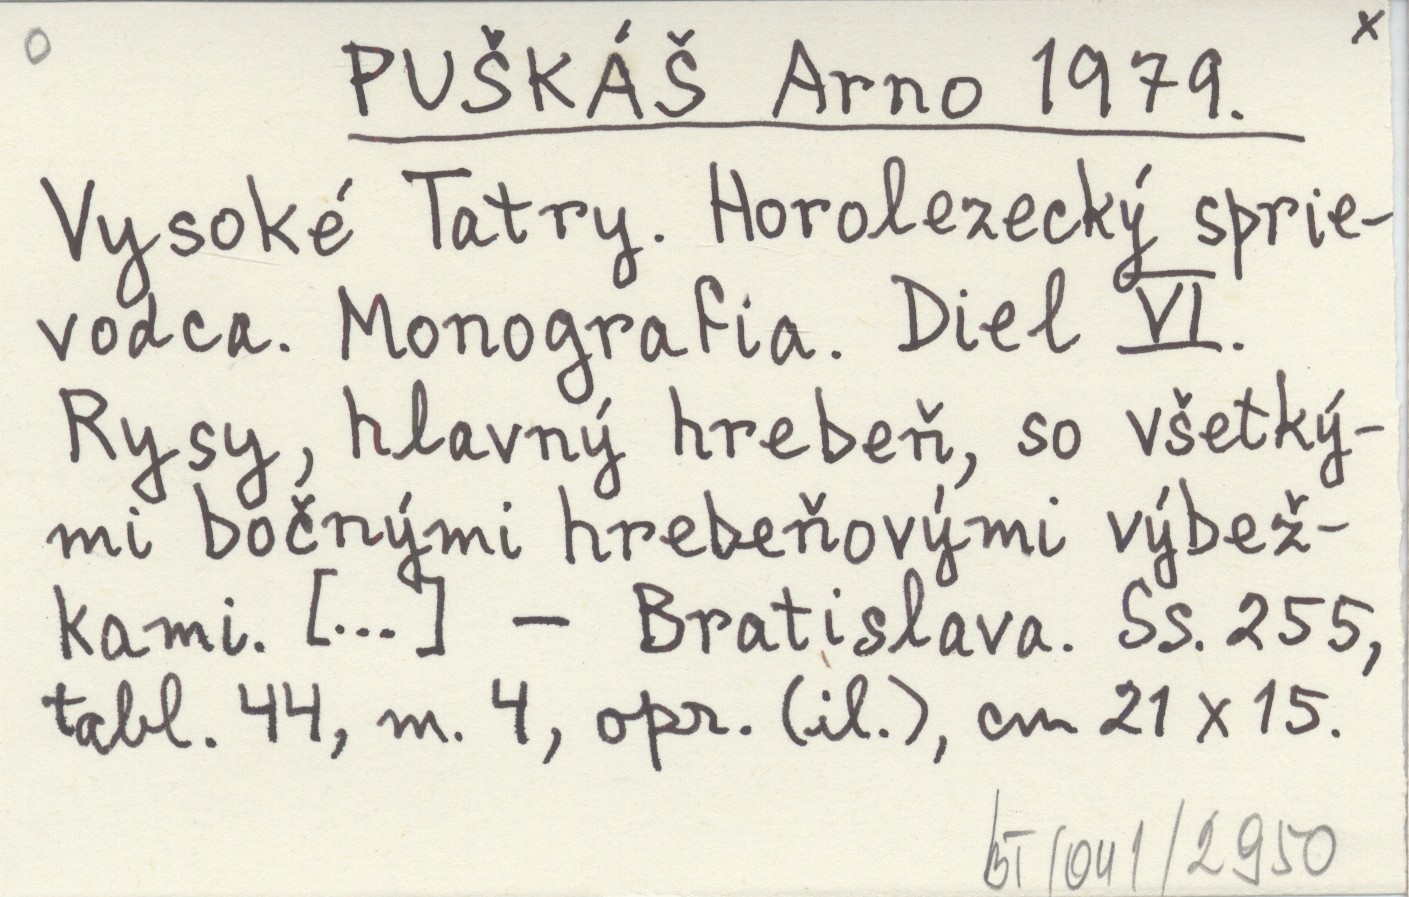 O
x
PUŠKÁŠ Arno 1979.
Vysoké Tatry. Horolezecký sprie-
vodca. Monografia. Diel VI.
Rysy, hlavný hrebeň, so všetký-
mi bočnými hrebeňovými výbež-
kami. [...] – Bratislava. Ss. 255,
tabl. 44, m. 4, opr. (il.), cm 21 x 15.
/041/2950